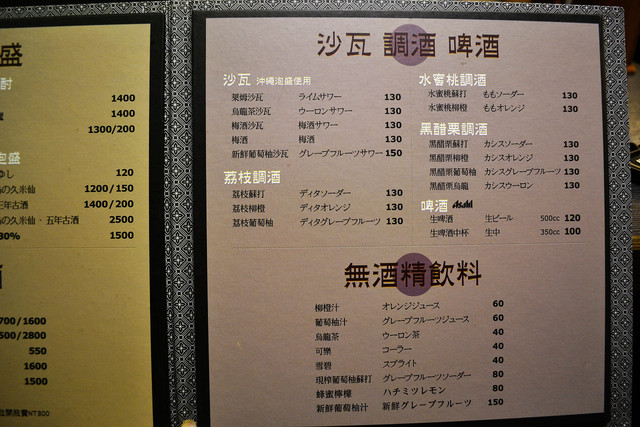 盛
酎
1400
1400
1300/200
泡盛
ゆし 120
の久米仙 1200/150
三年古酒 1400/200
の久米仙・五年古酒 2500
30% 1500
700/1600
500/2800
550
1600
1500
沙瓦 調酒 啤酒
沙瓦 沖繩泡盛使用
萊姆沙瓦 ライムサワー 130
烏龍茶沙瓦 ウーロンサワー 130
梅酒沙瓦 梅酒サワー 130
梅酒 梅酒 130
新鮮葡萄柚沙瓦 グレープフルーツサワー 150
荔枝調酒
荔枝蘇打 ディタソーダー 130
荔枝柳橙 ディタオレンジ 130
荔枝葡萄柚 ディタグレープフルーツ 130
水蜜桃調酒
水蜜桃蘇打 ももソーダー 130
水蜜桃柳橙 ももオレンジ 130
黑醋栗調酒
黑醋栗蘇打 カシスソーダー 130
黑醋栗柳橙 カシスオレンジ 130
黑醋栗葡萄柚 カシスグレープフルーツ 130
黑醋栗烏龍 カシスウーロン 130
啤酒 Asahi
生啤酒 生ビール 500cc 120
生啤酒中杯 生中 350cc 100
無酒精飲料
柳橙汁 オレンジジュース 60
葡萄柚汁 グレープフルーツジュース 60
烏龍茶 ウーロン茶 40
可樂 コーラー 40
雪碧 スプライト 40
現榨葡萄柚蘇打 グレープフルーツソーダー 80
蜂蜜檸檬 ハチミツレモン 80
新鮮葡萄柚汁 新鮮グレープフルーツ 150